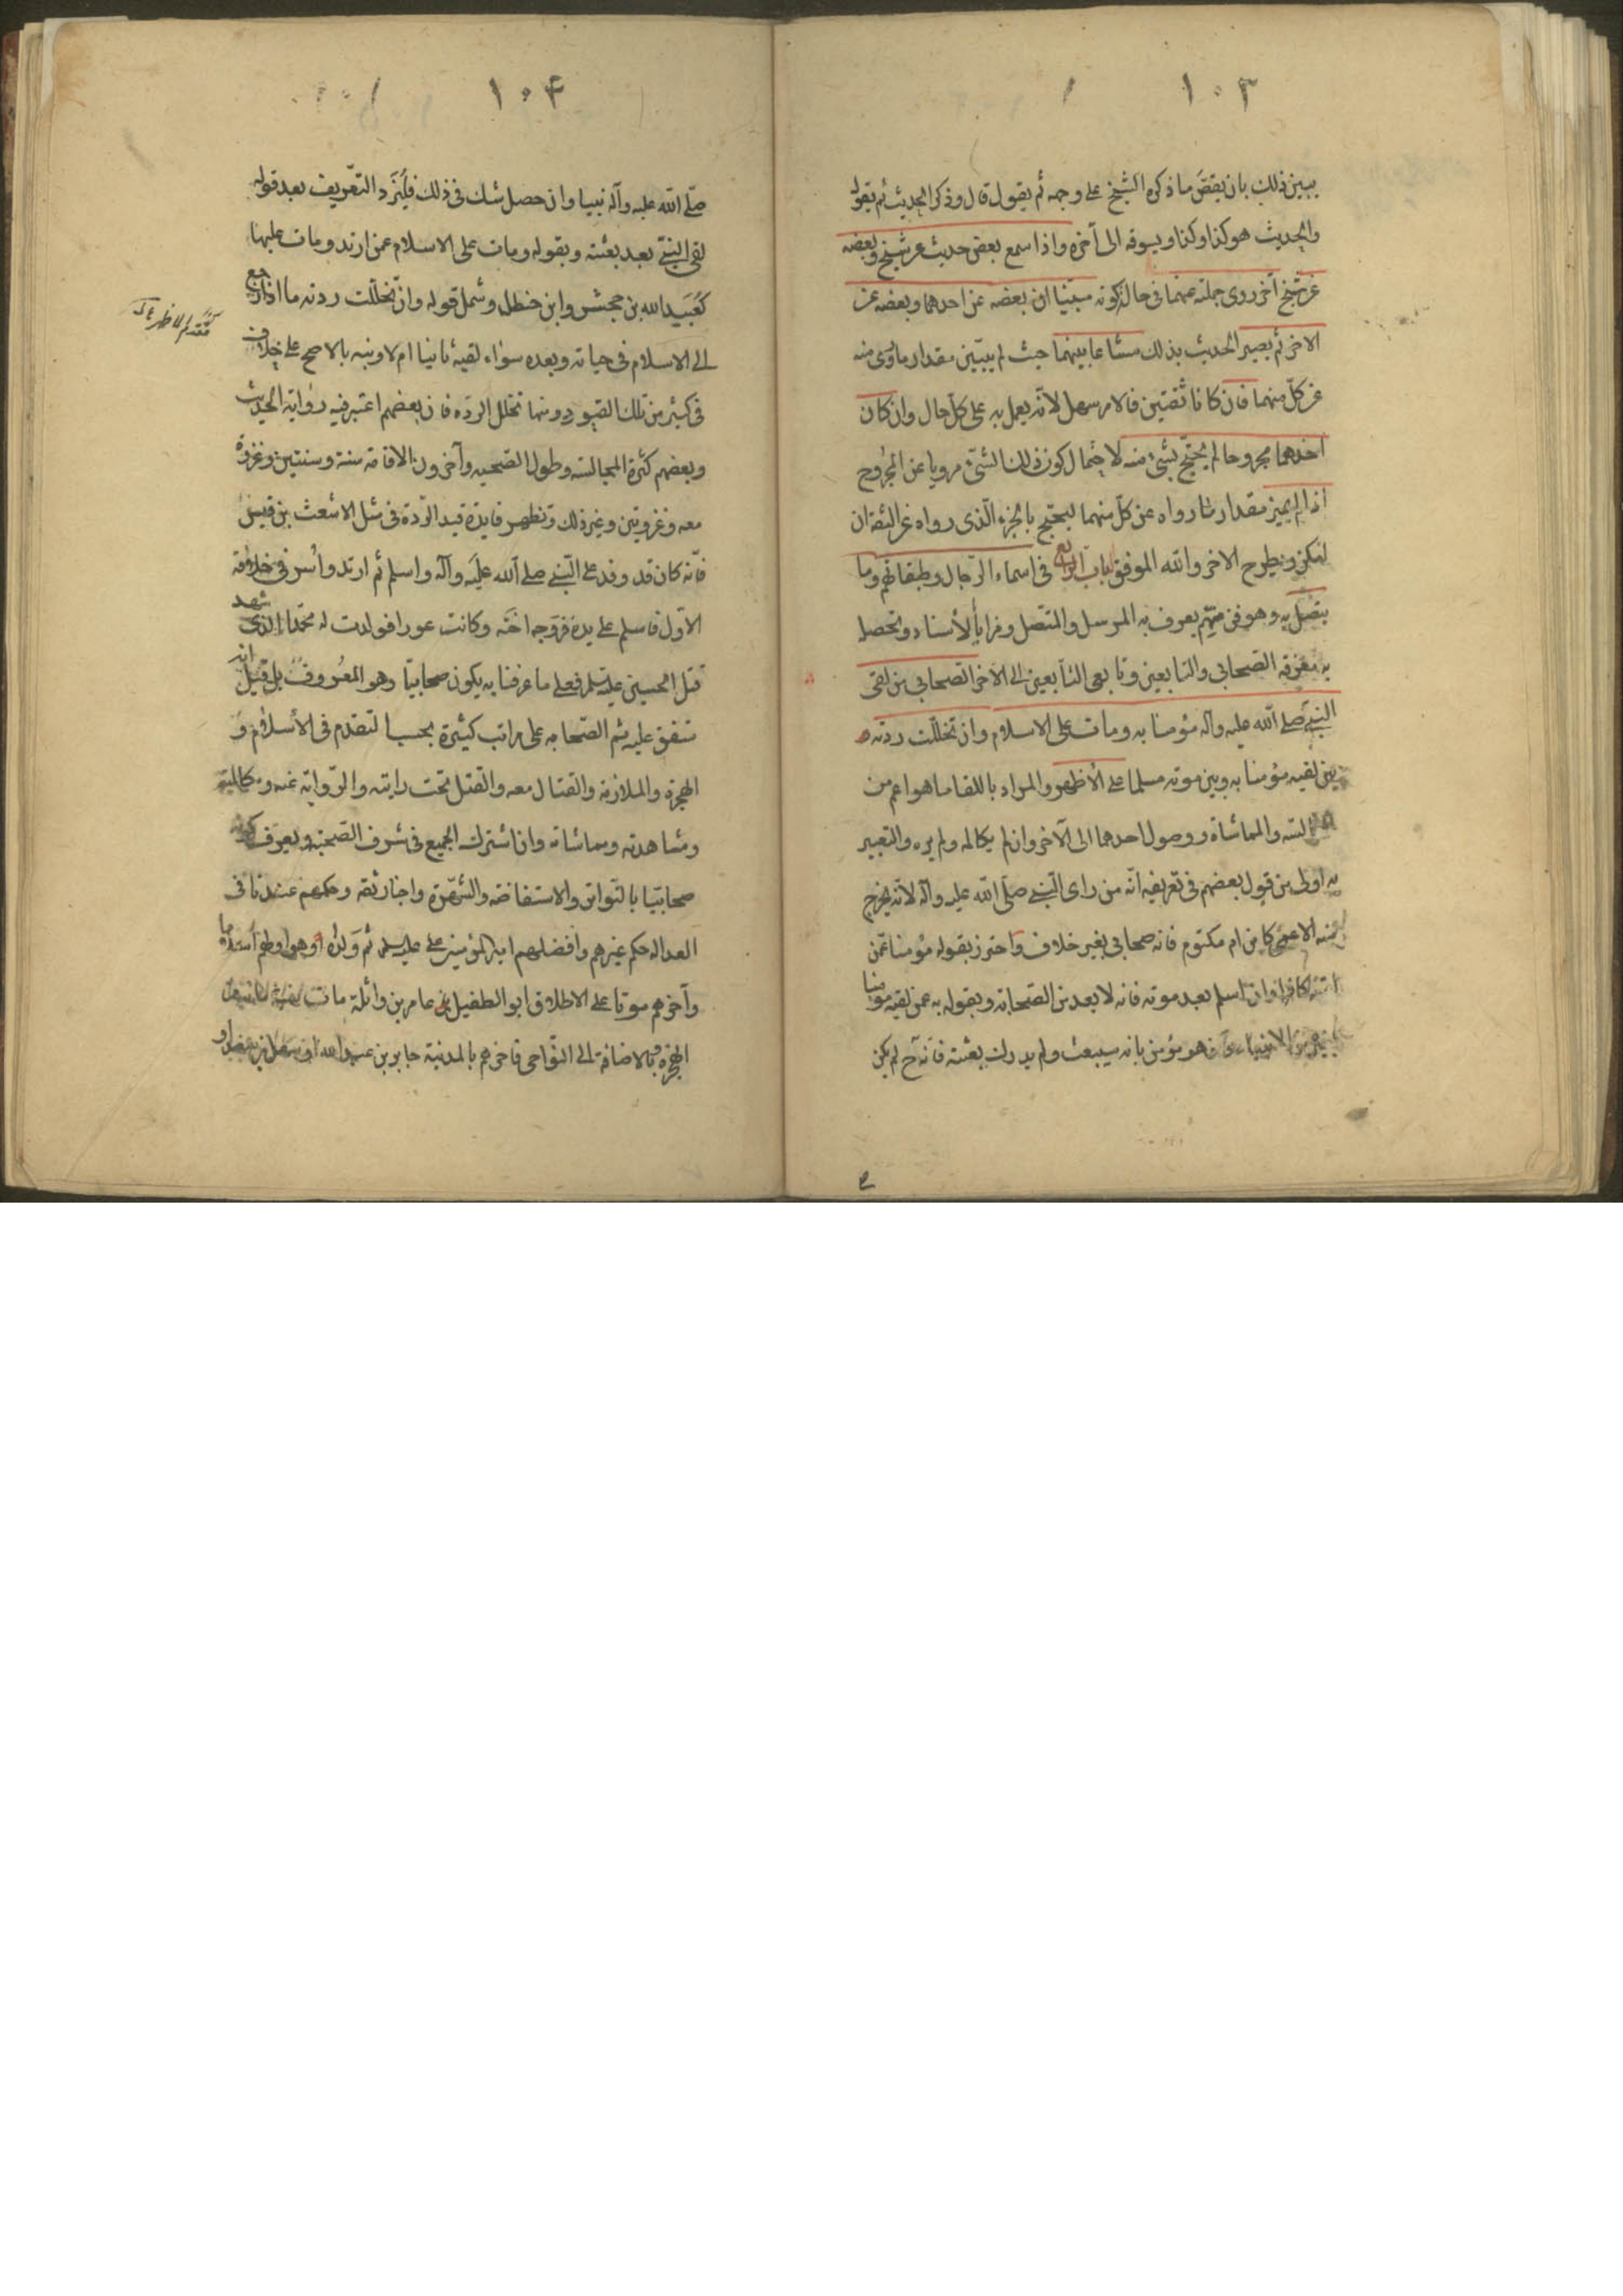 ١٠٣
يبين ذلك بان يقص ما ذكره الشيخ على وجهه ثم يقول قال وذكر الحديث ثم يقول
والحديث هو كذا وكذا ويسوقه الى آخره واذا سمع بعض حديث عن شيخ وبعضه
عن شيخ آخر روى جملته عنهما في حال كونه مبينا ان بعضه عن احدهما وبعضه عن
الاخر ثم يصير الحديث بذلك مشاعا بينهما حيث لم يبين مقدار ما روى منه
عن كل منهما فان كانا ثقتين فالامر سهل لانه يعمل به على كل حال وان كان
احدهما مجروحا لم يحتج بشيء منه لاحتمال كون ذلك الشيء مرويا عن المجروح
اذا لم يميز مقدار ما رواه عن كل منهما ليحتج بالجزء الذي رواه عن الثقة ان
امكن ويطرح الاخر والله الموفق الباب الرابع في اسماء الرجال وطبقاتهم وما
يتصل به وهو فن مهم يعرف به المرسل والمتصل ومزايا الأسناد ويحصل
به معرفة الصحابي والتابعين وتابعي التابعين الى الآخر الصحابي من لقى
النبي صلى الله عليه وآله مؤمنا به ومات على الاسلام وان تخللت ردته
بين لقيه مؤمنا به وبين موته مسلما على الأظهر والمراد باللقا ما هو اعم من
المجالسة والمماشاة ووصول احدهما الى الآخر وان لم يكالمه ولم يره والتعبير
به اولى من قول بعضهم في تعريفه انه من راى النبي صلى الله عليه وآله لانه يخرج
منه الاعمى كابن ام مكتوم فانه صحابي بغير خلاف واحترز بقوله مؤمنا عمن
لقيه كافرا وان اسلم بعد موته فانه لا يعد من الصحابة وبقوله به عمن لقيه مومنا
بغيره من الانبياء ومن هو مؤمن بانه سيبعث ولم يدرك بعثته فانه ح لم يكن
١٠۴
صلى الله عليه وآله نبيا وان حصل شك في ذلك فليزد التعريف بعد قوله
لقى النبي بعد بعثته وبقوله ومات على الاسلام عمن ارتد ومات عليها
كعبيد الله بن جحش وابن خطل وشمل قوله وان تخللت ردته ما اذا رجع
الى الاسلام في حياته وبعده سواء لقيه ثانيا ام لا ونبه بالاصح على خلاف
في كثير من تلك القيود ومنها تخلل الردة فان بعضهم اعتبر فيه رواية الحديث
وبعضهم كثرة المجالسة وطول الصحبه وآخرون الاقامة سنة وسنتين وغزوة
معه وغزوتين وغير ذلك وتظهر فايدة قيد الردة في مثل الاشعث بن قيس
فانه كان قد وفد على النبي صلى الله عليه وآله واسلم ثم ارتد واسر في خلافة
الاول فاسلم على يده فزوجه اخته وكانت عورا فولدت له محمدا الذي شهد
قتل الحسين عليه السلم فعلى ما عرفنا به يكون صحابيا وهو المعروف بل قيل انه
متفق عليه ثم الصحابه على مراتب كثيرة بحسب التقدم في الأسلام و
الهجرة والملازمة والقتال معه والقتل تحت رايته والرواية عنه ومكالمته
ومشاهدته ومماشاته وان اشترك الجميع في شرف الصحبة ويعرف كونه
صحابيا بالتواتر والاستفاضة والشهرة واخبار ثقة وحكمهم عندنا في
العدالة حكم غيرهم وافضلهم امير المؤمنين على عليه السلم ثم ولداه وهو اولهم اسلاما
وآخرهم موتا على الاطلاق ابو الطفيل عامر بن واثلة مات سنة مائة من
الهجرة وبالاضافة الى النواحي فاخرهم بالمدينة جابر بن عبد الله او سهل بن سعد او